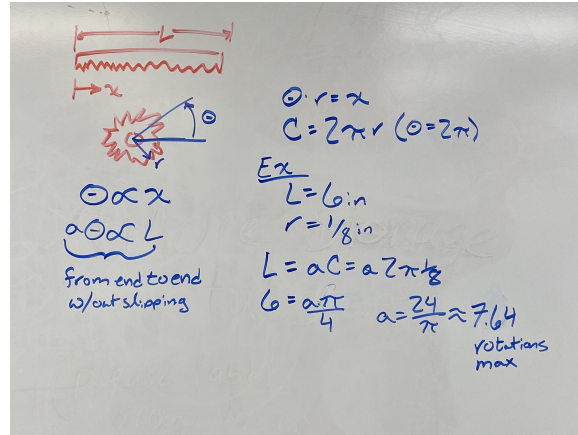 L
x
θ
r
θ ∝ x
aθ ∝ L
from end to end
w/out slipping
θ·r = x
C = 2πr (θ = 2π)
Ex
L = 6in
r = 1/8 in
L = aC = a2π 1/8
6 = aπ/4
a = 24/π ≈ 7.64
rotations
max